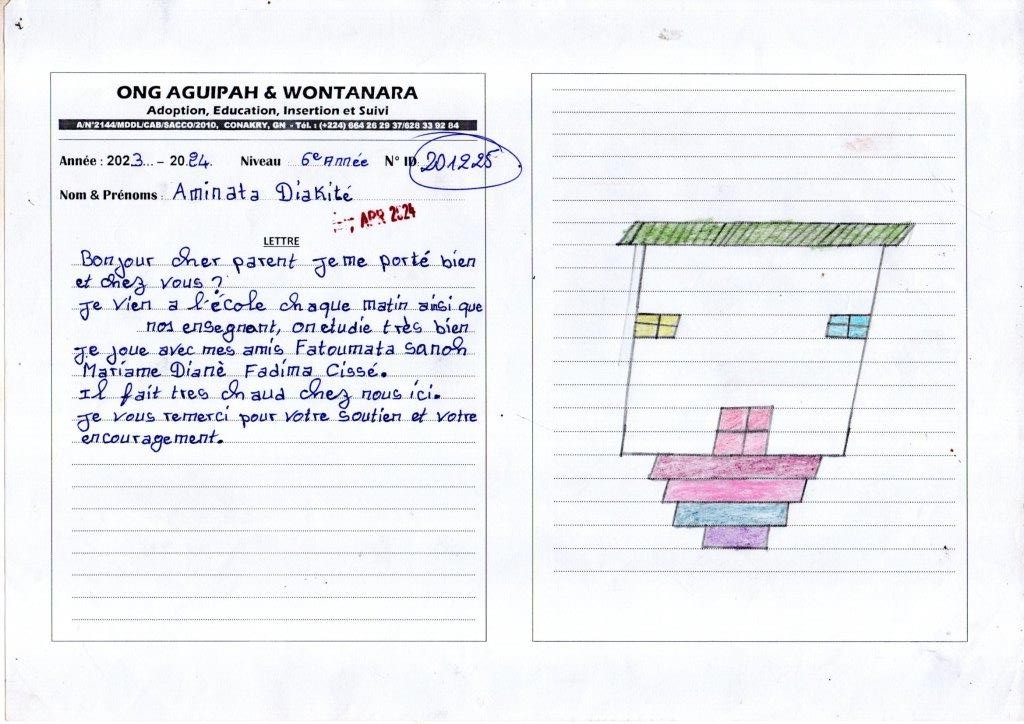 ONG AGUIPAH & WONTANARA
Adoption, Education, Insertion et Suivi
A/N°2144/MDDL/CAB/SACCO/2010, CONAKRY, GN - Tél. : (+224) 664 26 29 37/628 33 92 84
Année : 2023... - 2024. Niveau 6e Année N° ID. 201225
Nom & Prénoms : Aminata Diakité
APR 2024
LETTRE
Bonjour cher parent je me porté bien
et chez vous ?
je vien a l'école chaque matin ainsi que
nos ensegnant, on etudie très bien
je joue avec mes amis Fatoumata Sanoh
Mariame Dianè Fadima Cissé.
Il fait tres chaud chez nous ici.
je vous remerci pour votre soutien et votre
encouragement.